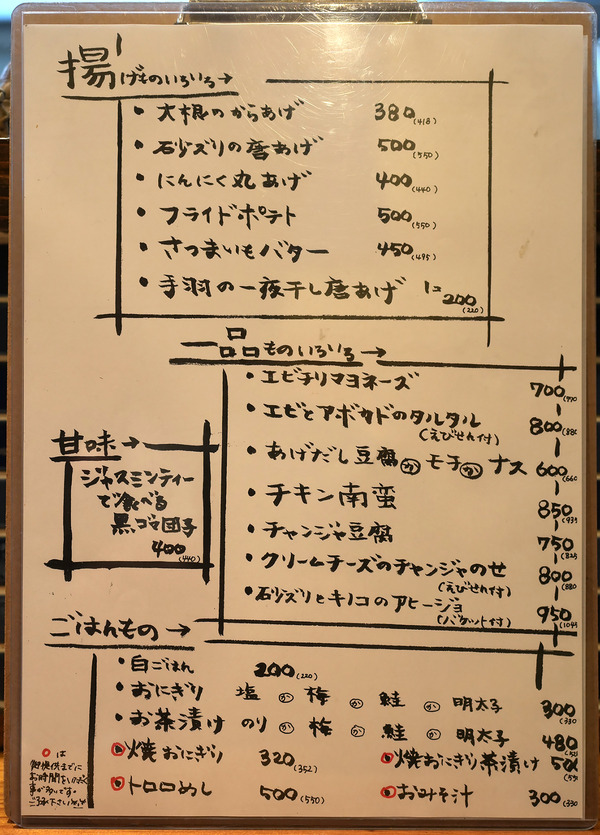 揚げものいろいろ→
・大根のからあげ 380(418)
・砂ズリの唐あげ 500(550)
・にんにく丸あげ 400(440)
・フライドポテト 500(550)
・さつまいもバター 450(495)
・手羽の一夜干し唐あげ 1コ200(220)
一品ものいろいろ→
・エビチリマヨネーズ 700(770
・エビとアボカドのタルタル 800(880
(えびせん付)
・あげだし豆腐かモチかナス 600(660
・チキン南蛮 850(935
・チャンジャ豆腐 750(825
・クリームチーズのチャンジャのせ 800(880
(えびせん付)
・砂ズリとキノコのアヒージョ 950(1045
(バケット付)
甘味→
ジャスミンティー
で食べる
黒ゴマ団子
400(440)
ごはんもの→
・白ごはん 200(220)
・おにぎり 塩か梅か鮭か明太子 300(330
・お茶漬け のりか梅か鮭か明太子 480(528
・焼おにぎり 320(352)
・焼おにぎり茶漬け 500(550
・トロロめし 500(550)
・おみそ汁 300(330
○は
御提供までに
お時間をいただく
事が多いです。
ご了承下さい